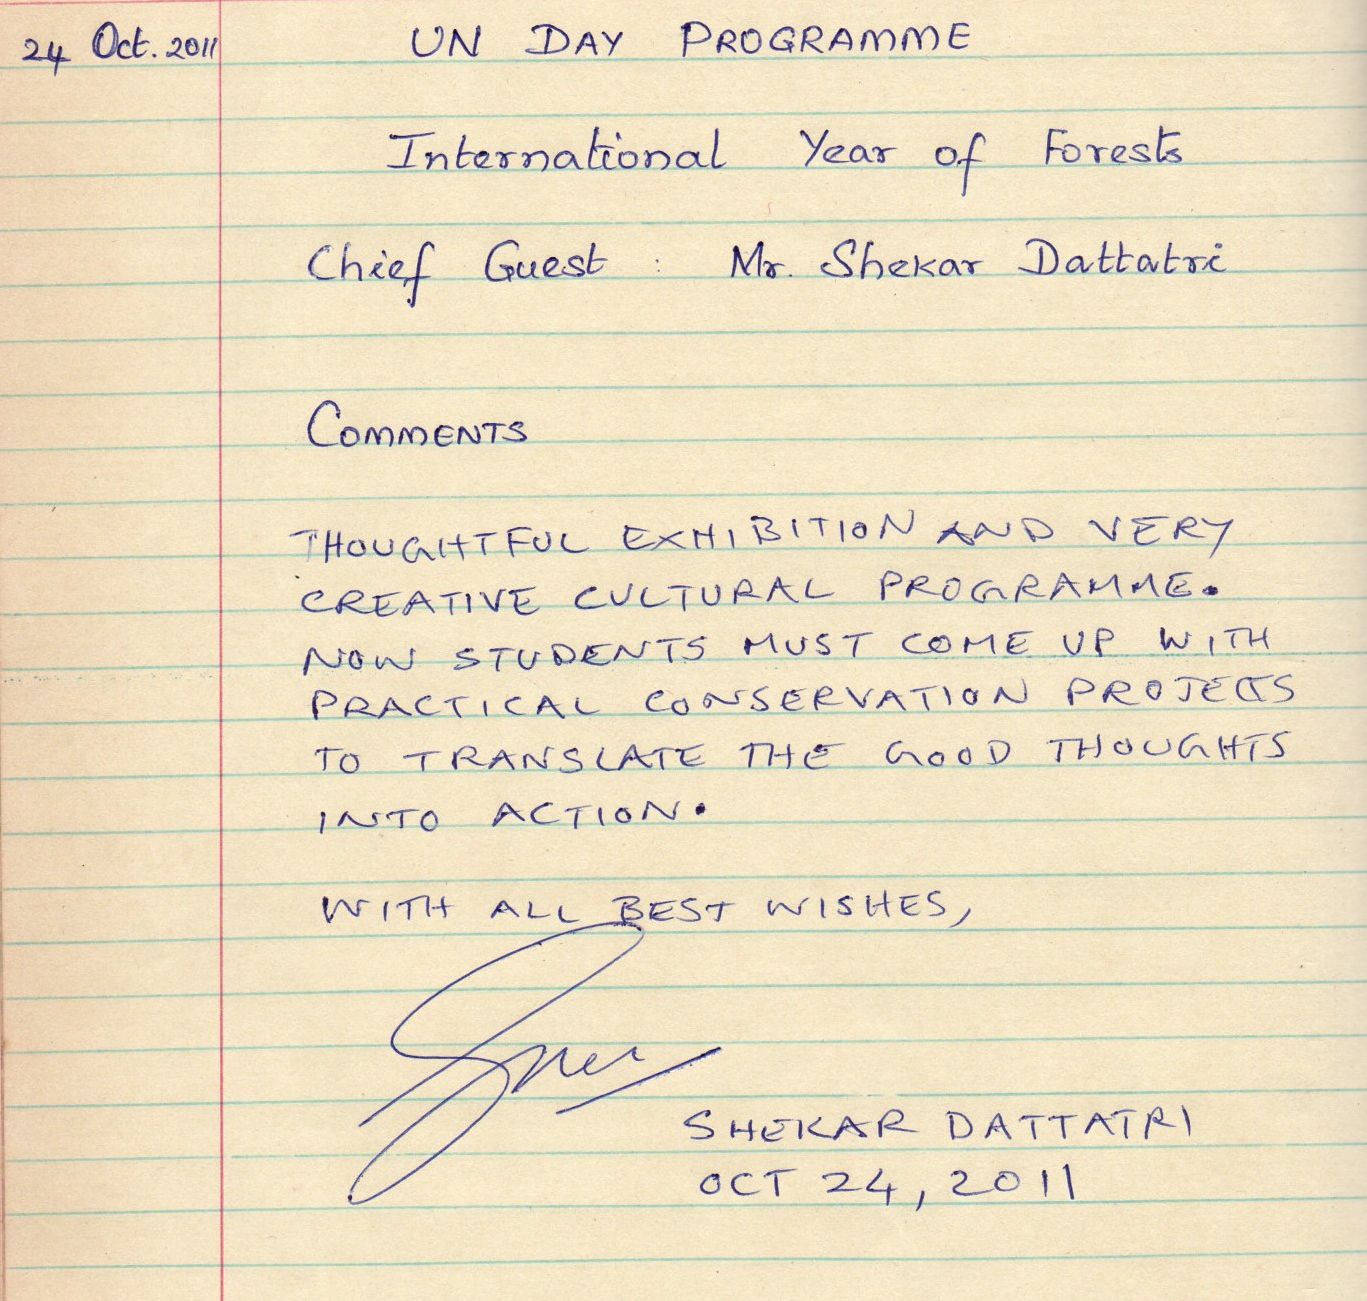 24 Oct. 2011
UN DAY PROGRAMME
International Year of Forests
Chief Guest : Mr. Shekar Dattatri
COMMENTS
THOUGHTFUL EXHIBITION AND VERY
CREATIVE CULTURAL PROGRAMME.
NOW STUDENTS MUST COME UP WITH
PRACTICAL CONSERVATION PROJECTS
TO TRANSLATE THE GOOD THOUGHTS
INTO ACTION.
WITH ALL BEST WISHES,
SHEKAR DATTATRI
OCT 24, 2011